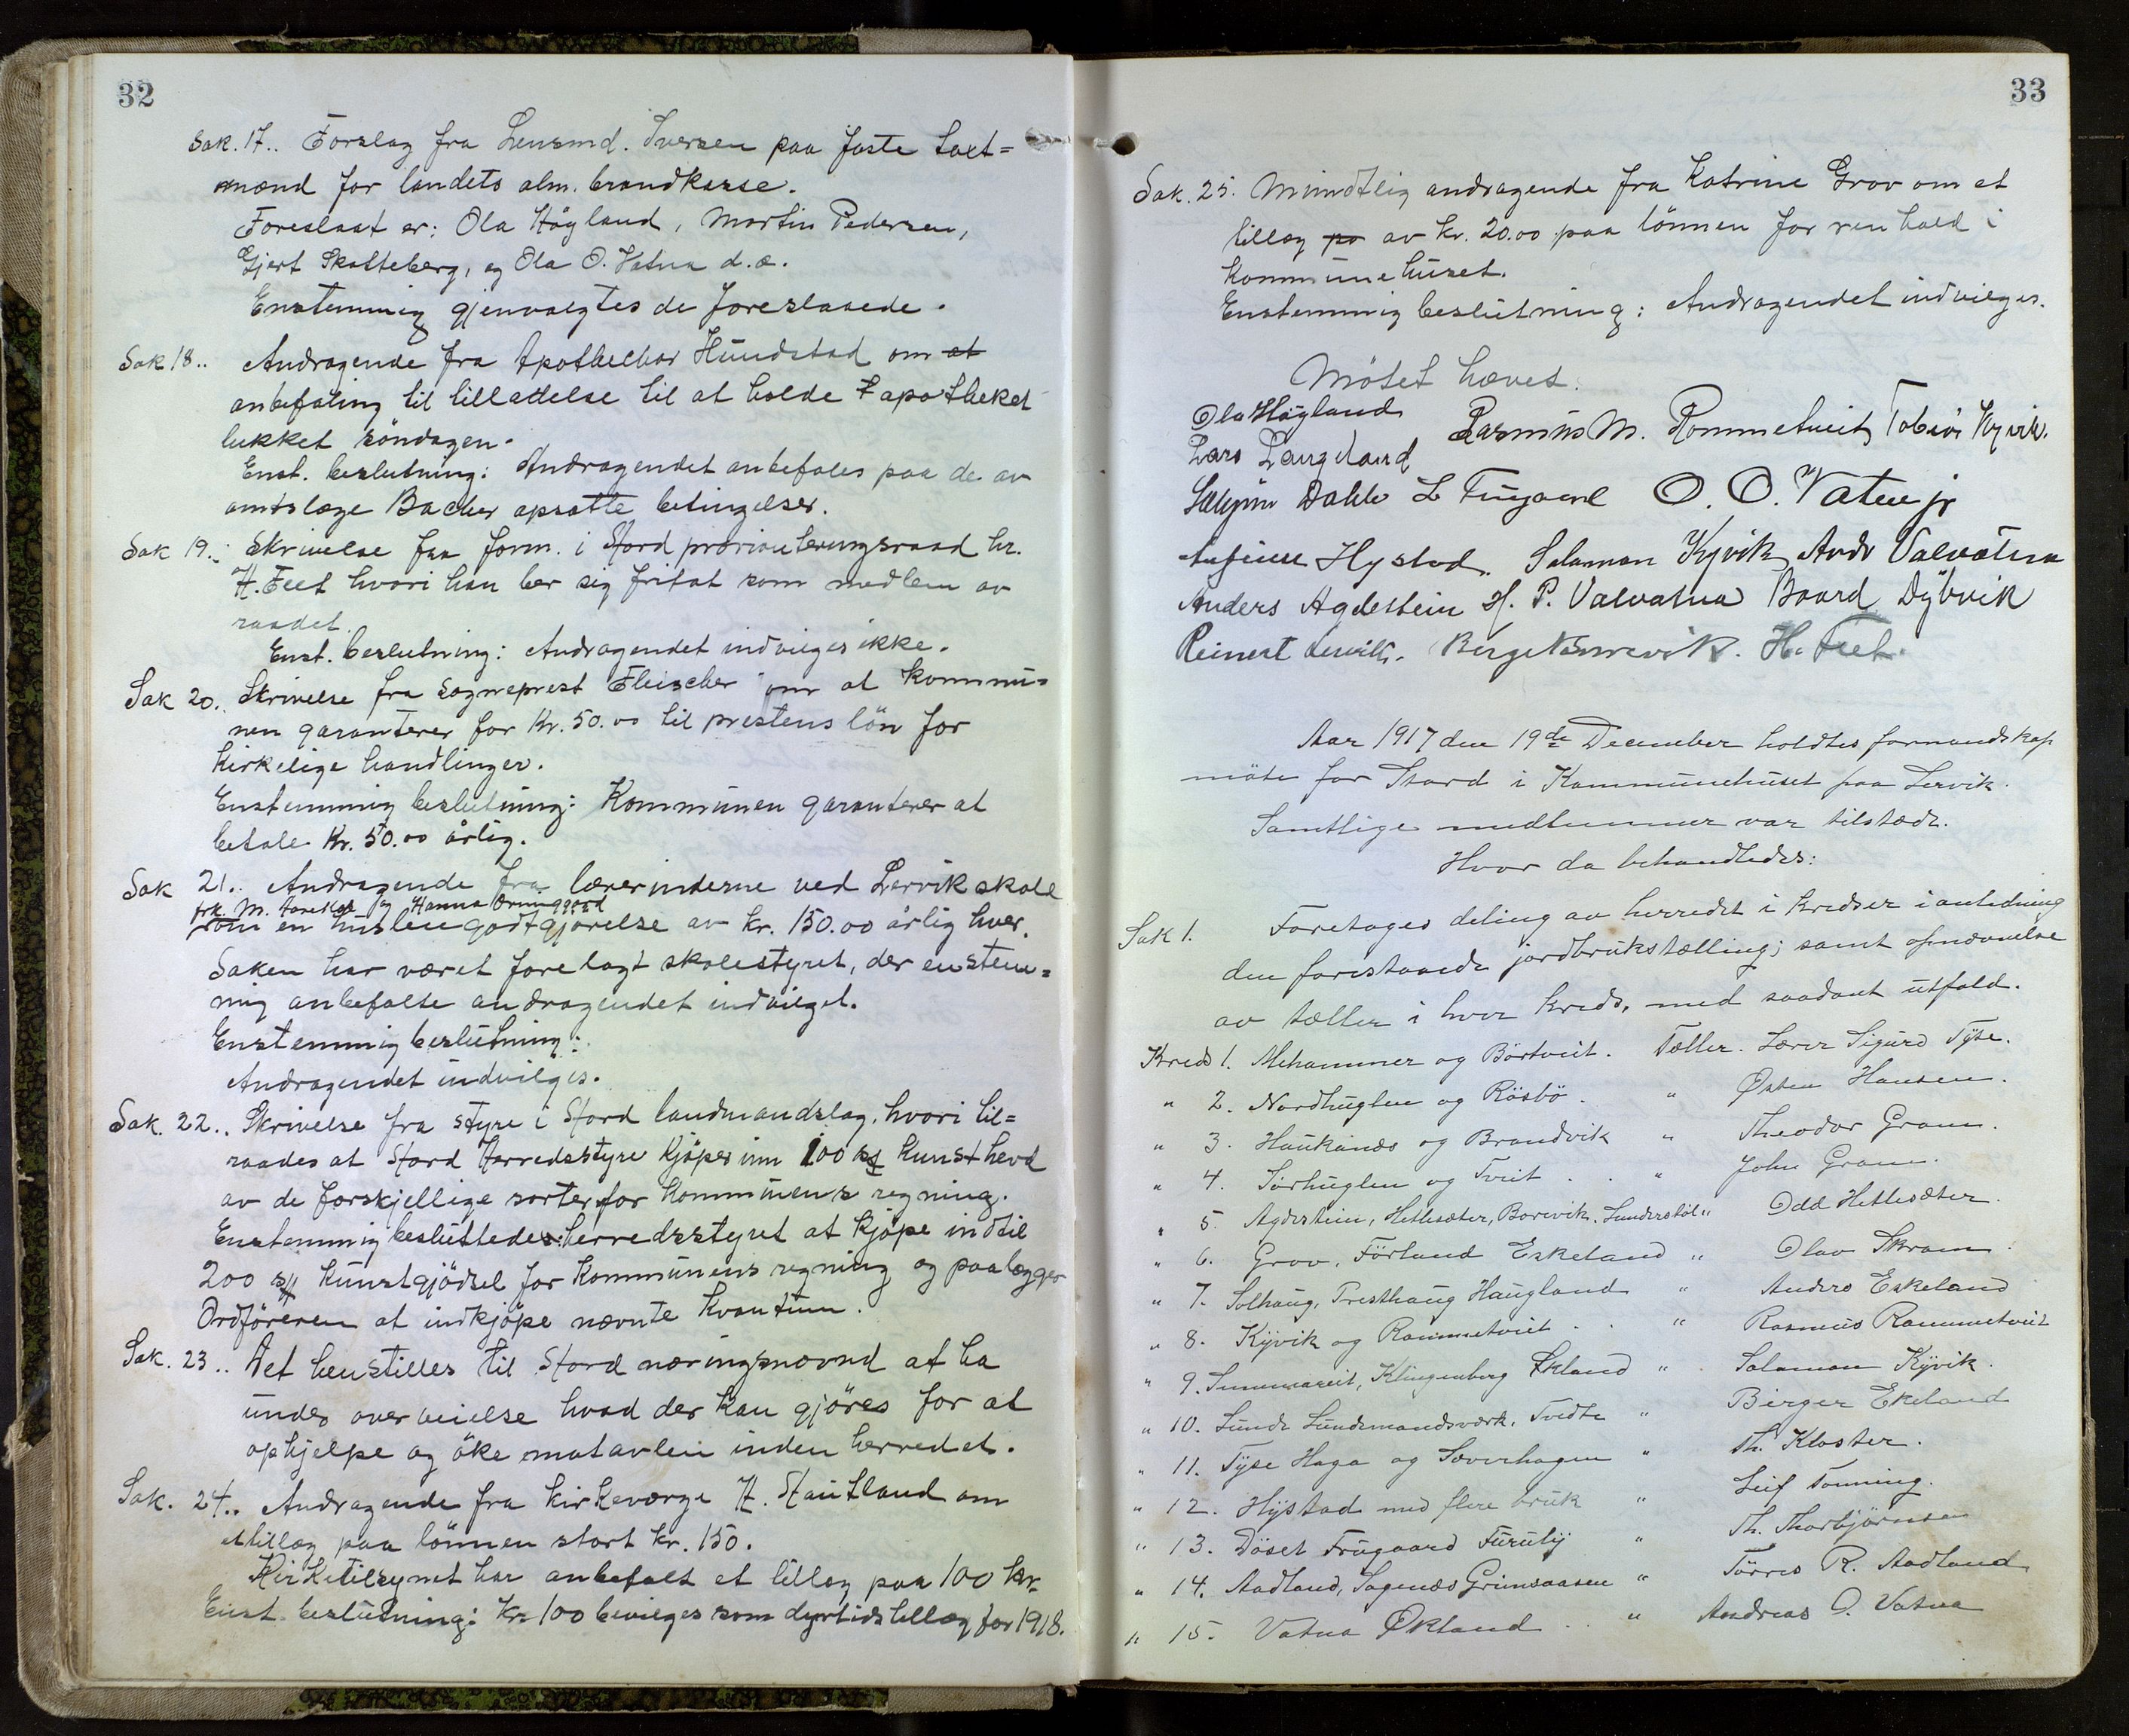 32
Sak. 17.. Forslag fra Lensmd. Iversen paa faste taxt=
mænd for landets alm. brandkasse.
Foreslaat er: Ola Høgland, Martin Pedersen,
Gjert Skatteberg, og Ola O. Vatna d.æ.
Enstemmig gjenvalgtes de foreslaaede.
Sak 18.. Andragende fra Apotheker Hundstad om at
anbefaling til tillattelse til at holde apotheket
lukket söndagen.
Enst. beslutning: Andragendet anbefales paa de av
amtslæge Backer opsatte betingelser.
Sak 19.. Skrivelse fra form. i Stord provianteringsraad hr.
H. Feet hvori han ber sig fritat som medlem av
raadet.
Enst. beslutning: Andragendet indvilges ikke.
Sak 20.. Skrivelse fra Sogneprest Fleischer om at kommu=
nen garanterer for Kr. 50.00 til prestens lön for
kirkelige handlinger.
Enstemmig beslutning: Kommunen garanterer at
betale Kr. 50.00 årlig.
Sak 21.. Andragende fra lærerinderne ved Lervik skole
frk. M. og Hanna
om en husleiegodtgjörelse av kr. 150.00 årlig hver.
Saken har været forelagt skolestyret, der enstem=
mig anbefalte andragendet indvilget.
Enstemmig beslutning:
Andragendet indvilges.
Sak. 22.. Skrivelse fra styre i Stord landmandslag, hvori til=
raades at Stord Herredsstyre kjöper inn 100 sk kunsthevd
av de forskjellige sorter for kommunens regning.
Enstemmig besluttedes: herredsstyret at kjöpe indtil
200 sk kunstgjödsel for kommunens regning og paalegger
Ordföreren at indkjöpe nævnte kvantum.
Sak. 23.. Det henstilles til Stord næringsnævnd at ha
under overveielse hvad der kan gjöres for at
ophjelpe og öke matavlen inden herredet.
Sak. 24.. Andragende fra kirkeværge H. Stautland om
et tillæg paa lönnen stort kr. 150.
Kirketilsynet har anbefalt et tillæg paa 100 kr.
Enst. beslutning: Kr. 100 bevilges som dyrtidstillæg for 1918.
33
Sak. 25. Mundtlig andragende fra Katrine Grov om et
tillæg pa av kr. 20.00 paa lönnen for renhold i
kommunehuset.
Enstemmig beslutning: Andragendet indvilges.
Mötet hæves.
Ola Høgland Rasmus M. Rommetveit Tobias Kyvik.
Lars Langeland
Dahle L Frugaard O. O. Vatne jr
Hystad. Salamon Kyvik Andr Valvatna
Anders Agdestein H. P. Valvatna Baard Dybvik
Reinert Lervik. Birger H. Feet.
Aar 1917 den 19de December holdtes formandskap
möte for Stord i Kommunehuset paa Lervik.
Samtlige medlemmer var tilstæde.
Hvor da behandledes:
Sak 1. Foretages deling av herredet i kredser i anledning
den forestaaende jordbrukstælling; samt opnævnelse
av tæller i hver kreds, med saadant utfald.
Kreds 1. Mehammer og Börtveit. Tæller. Lærer Sigurd Tyse.
" 2. Nordhuglen og Rösbö. " Østen Hansen.
" 3. Haukanes og Brandvik " Theodor Gram.
" 4. Sörhuglen og Tveit . . " John Gram.
" 5. Agdestein, Hetlesæter, Borevik, Sunderstöl " Odd Hetlesæter.
" 6. Grov, Förland Eskeland " Olav Skram.
" 7. Solhaug, Presthaug Haugland " Anders Eskeland
" 8. Kyvik og Rommetveit . . " Rasmus Rommetveit
" 9. Summareit, Klingenberg Ekland " Salamon Kyvik.
" 10. Lunde Lundemandsværk, Tvedte " Birger Ekeland
" 11. Tyse Haga og Sæverhagen " Th. Kloster.
" 12. Hystad med flere bruk " Leif Tonning.
" 13. Döset Frugaard Furuly " Th. Thorbjörnsen
" 14. Aadland, Sagenes Grimsaasen " Törres R. Aadland
" 15. Vatna Økland . . " Andreas O. Vatna